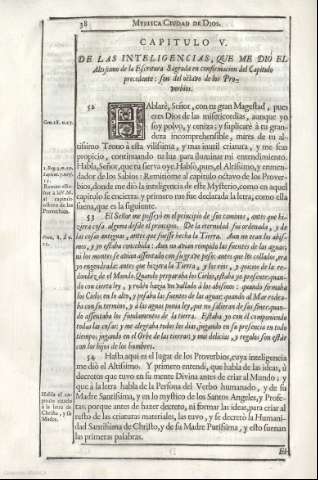 38 MYSTICA CIUDAD DE DIOS.
CAPITULO V.
DE LAS INTELIGENCIAS, QUE ME DIÒ EL
Altissimo de la Escritura Sagrada en confirmacion del Capitulo
precedente: son del octavo de los Pro-
verbios.
52 HAblarè, Señor, con tu gran Magestad, pues
eres Dios de las misericordias, aunque yo
soy polvo, y ceniza: y suplicarè à tu gran-
deza incomprehensible, mires de tu al-
tissimo Trono à esta vilissima, y mas inutil criatura, y me seas
propicio, continuando tu luz para iluminar mi entendimiento.
Habla, Señor, que tu sierva oye. Hablò, pues, el Altissimo, y en-
mendador de los Sabios: Remitiòme al capitulo octavo de los Prover-
bios, donde me diò la inteligencia de este Mysterio, como en aquel
capitulo se encierra: y primero me fue declarada la letra, como ella
suena, que es la siguiente.
53 El Señor me posseyò en el principio de sus caminos, antes que hi-
ziera cosa alguna desde el principio. De la eternidad fui ordenada, y de
las cosas antiguas, antes que fuesse hecha la Tierra. Aun no eran los abis-
mos, y yo estaba concebida: Aun no avian rompido las fuentes de las aguas;
ni los montes se avian assentado con su grave peso: antes que los collados, era
yo engendrada: antes que hiziera la Tierra, y los rios, y quicios de la re-
dondez de el Mundo. Quando preparaba los Cielos, estaba yo presente: quan-
do con cierta ley, y rodèo hazia un vallado à los abismos: quando firmaba
los Cielos en lo alto, y pesaba las fuentes de las aguas: quando al Mar rodea-
ba con su termino, y à las aguas ponia ley, que no salieran de sus fines: quan-
do assentaba los fundamentos de la tierra. Estaba yo con èl componiendo
todas las cosas: y me alegraba todos los dias, jugando en su presencia en todo
tiempo; jugando en el Orbe de las tierras: y mis delicias, y regalos son estàr
con los hijos de los hombres.
54 Hasta aqui es el lugar de los Proverbios, cuya inteligencia
me diò el Altissimo. Y primero entendì, que habla de las ideas, ù
decretos que tuvo en su mente Divina antes de criar al Mundo; y
que à la letra habla de la Persona del Verbo humanado, y de su
Madre Santissima, y en lo mystico de los Santos Angeles, y Profe-
tas; porque antes de hazer decreto, ni formar las ideas, para criar al
resto de las criaturas materiales, las tuvo, y se decretò la Humani-
dad Santissima de Christo, y de su Madre Purissima, y esto suenan
las primeras palabras.
El
Gen. 18. v. 27.
Prov. 8. à v.
Habla el ca-
pitulo citado
à la letra de
Christo, y su
Madre.